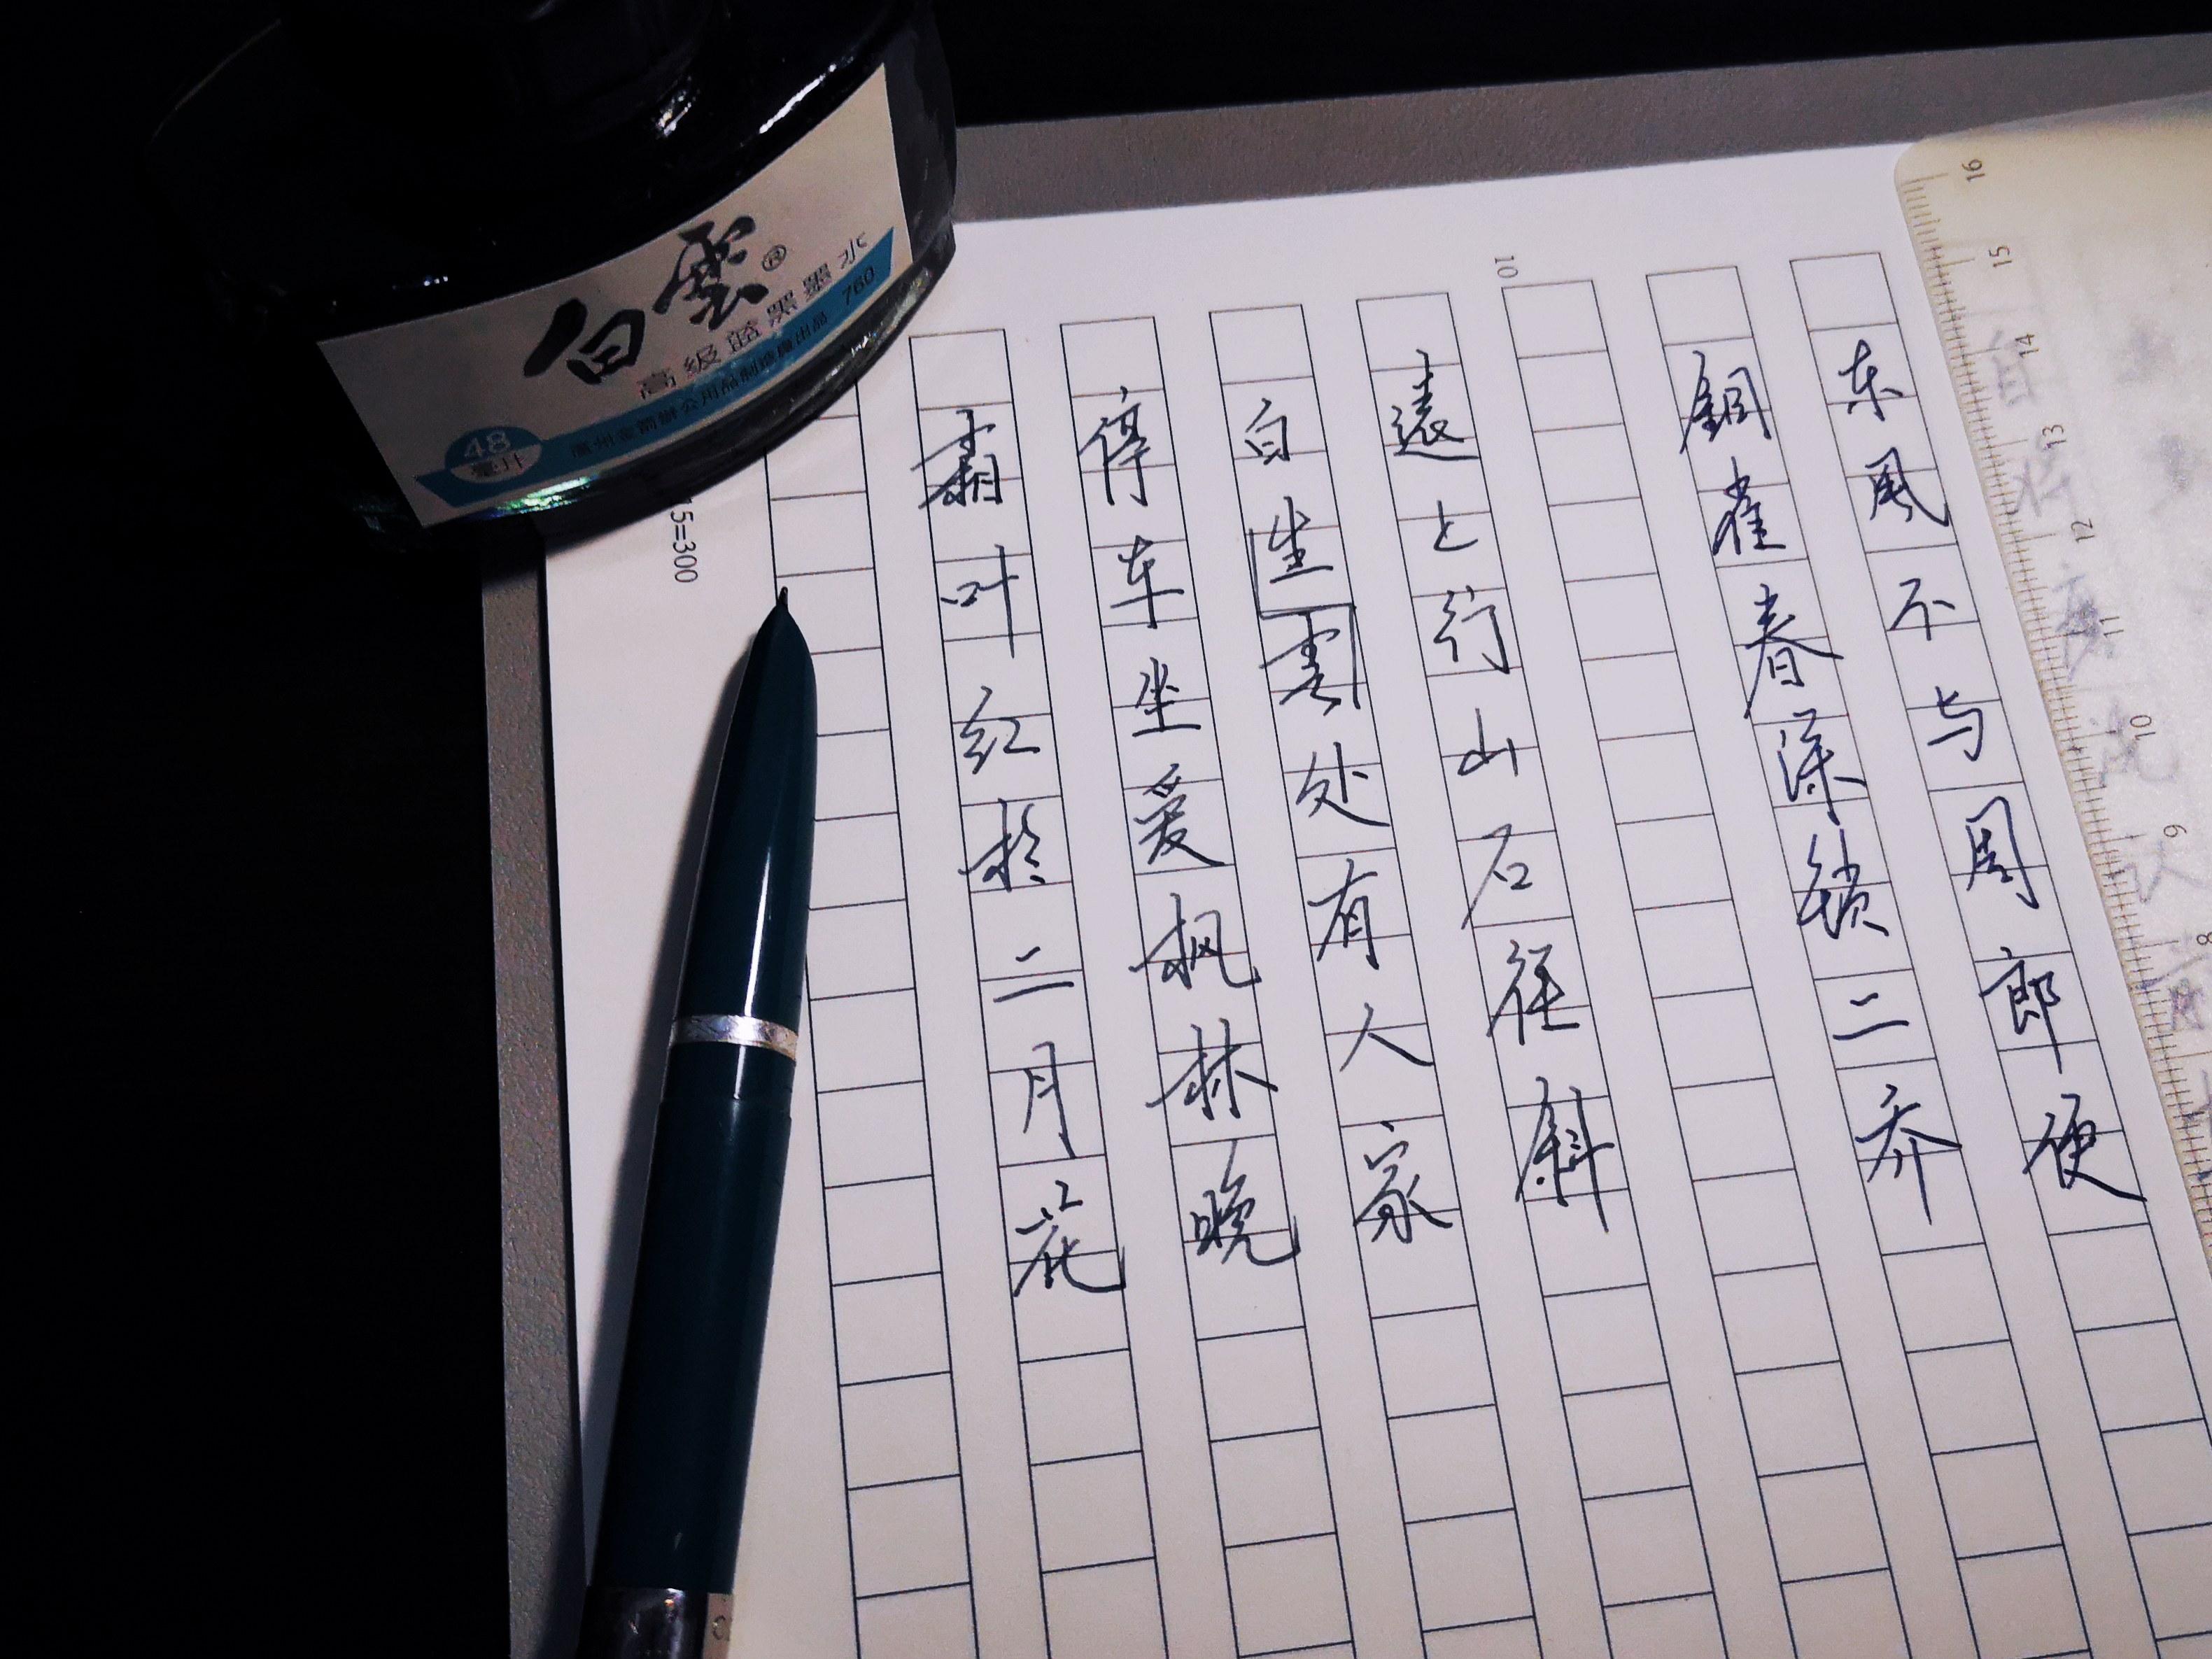 东风不与周郎便
銅雀春深锁二乔
遠上行山石径斜
白生雲处有人家
停车坐爱枫林晚
霜叶红於二月花
10
15=300
白雲®
高级蓝黑墨水
760
48
毫升
16
15
14
13
12
11
10
9
8